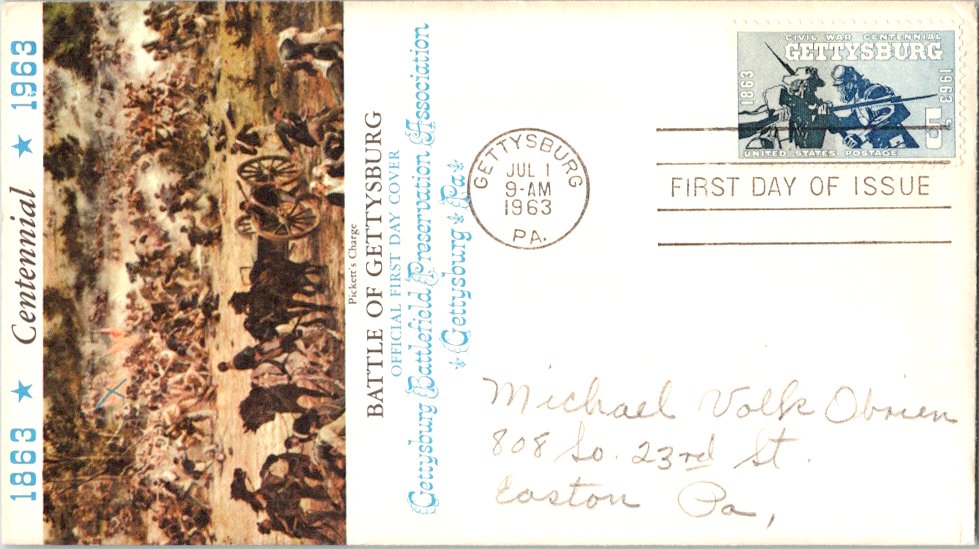 1863 ★ Centennial ★ 1963
Pickett's Charge
BATTLE OF GETTYSBURG
OFFICIAL FIRST DAY COVER
Gettysburg Battlefield Preservation Association
★ Gettysburg ★ Pa ★
GETTYSBURG
JUL 1
9-AM
1963
PA.
CIVIL WAR CENTENNIAL
GETTYSBURG
1863
1963
5c
UNITED STATES POSTAGE
FIRST DAY OF ISSUE
Michael Volk Obrien
808 So. 23rd St.
Easton Pa,